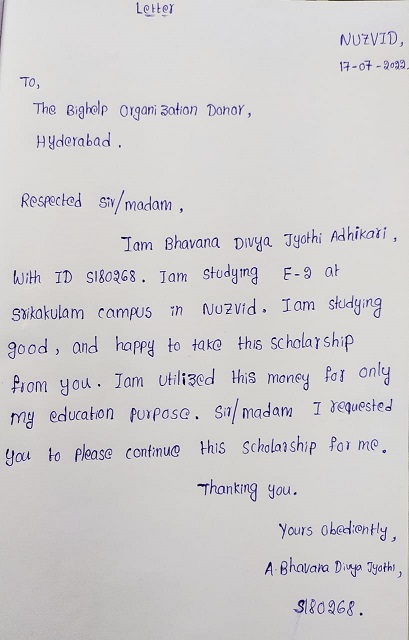 Letter
NUZVID,
17-07-2022.
To,
The Bighelp Organization Donor,
Hyderabad.
Respected Sir/madam,
Iam Bhavana Divya Jyothi Adhikari,
with ID S180268. Iam studying E-2 at
Srikakulam campus in Nuzvid. Iam studying
good, and happy to take this scholarship
from you. Iam utilized this money for only
my education purpose. Sir/madam I requested
you to please continue this scholarship for me.
Thanking you.
Yours Obediently,
A. Bhavana Divya Jyothi,
S180268.